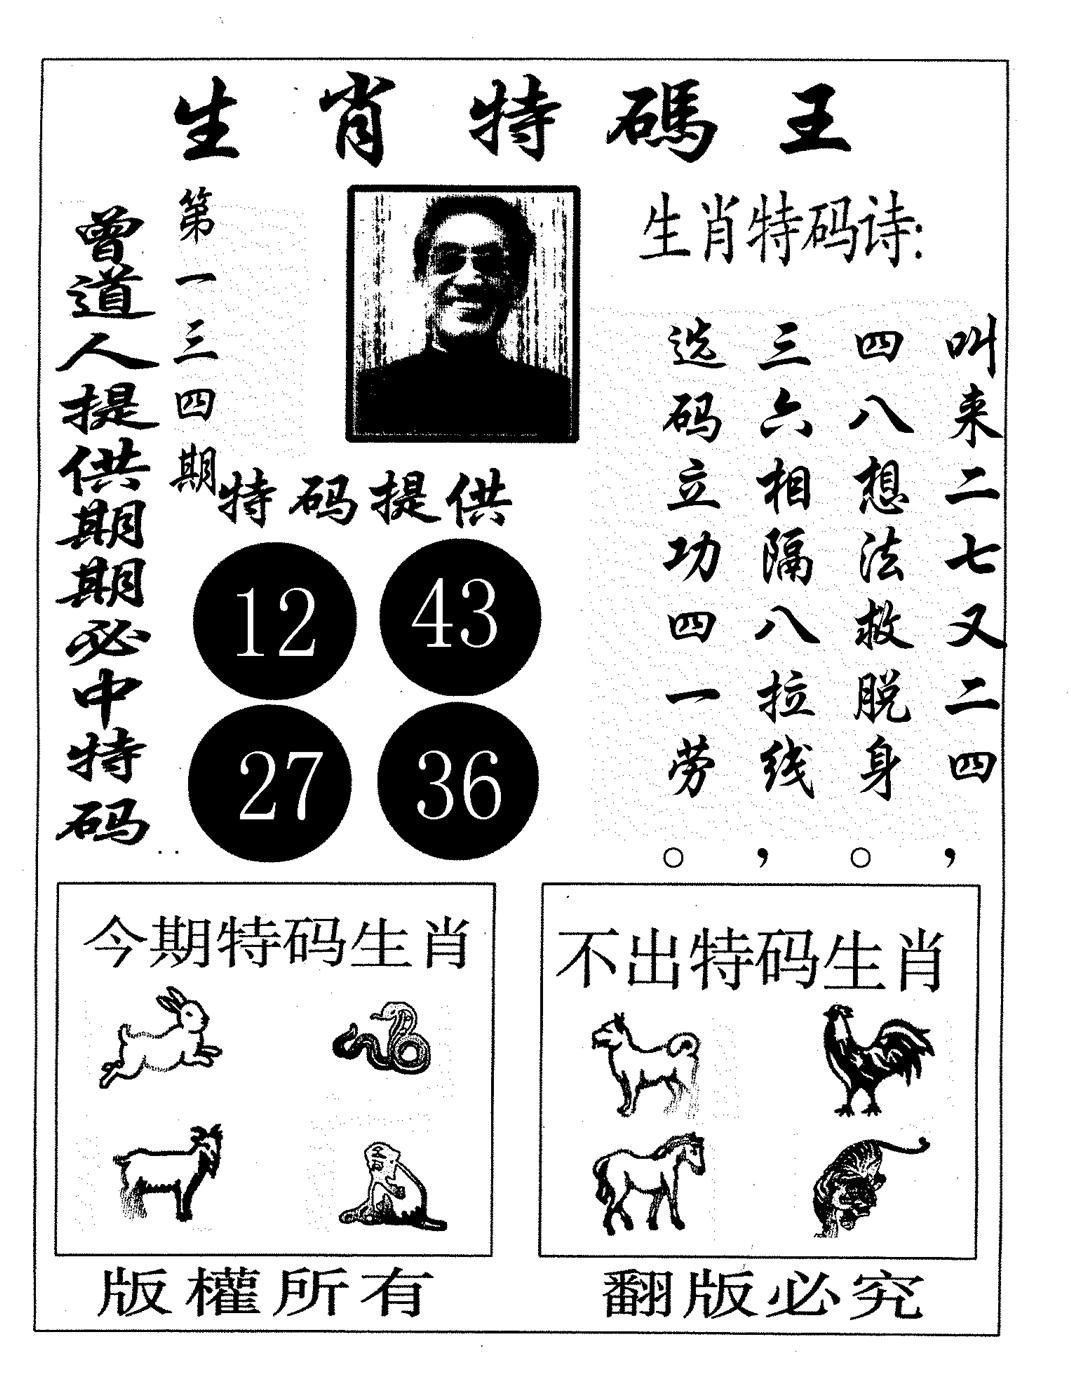 生肖特碼王
曾道人提供期期必中特码
第一三四期
生肖特码诗:
叫来二七又二四，
四八想法救脱身。
三六相隔八拉线，
选码立功四一劳。
特码提供
12 43
27 36
今期特码生肖
不出特码生肖
版權所有
翻版必究